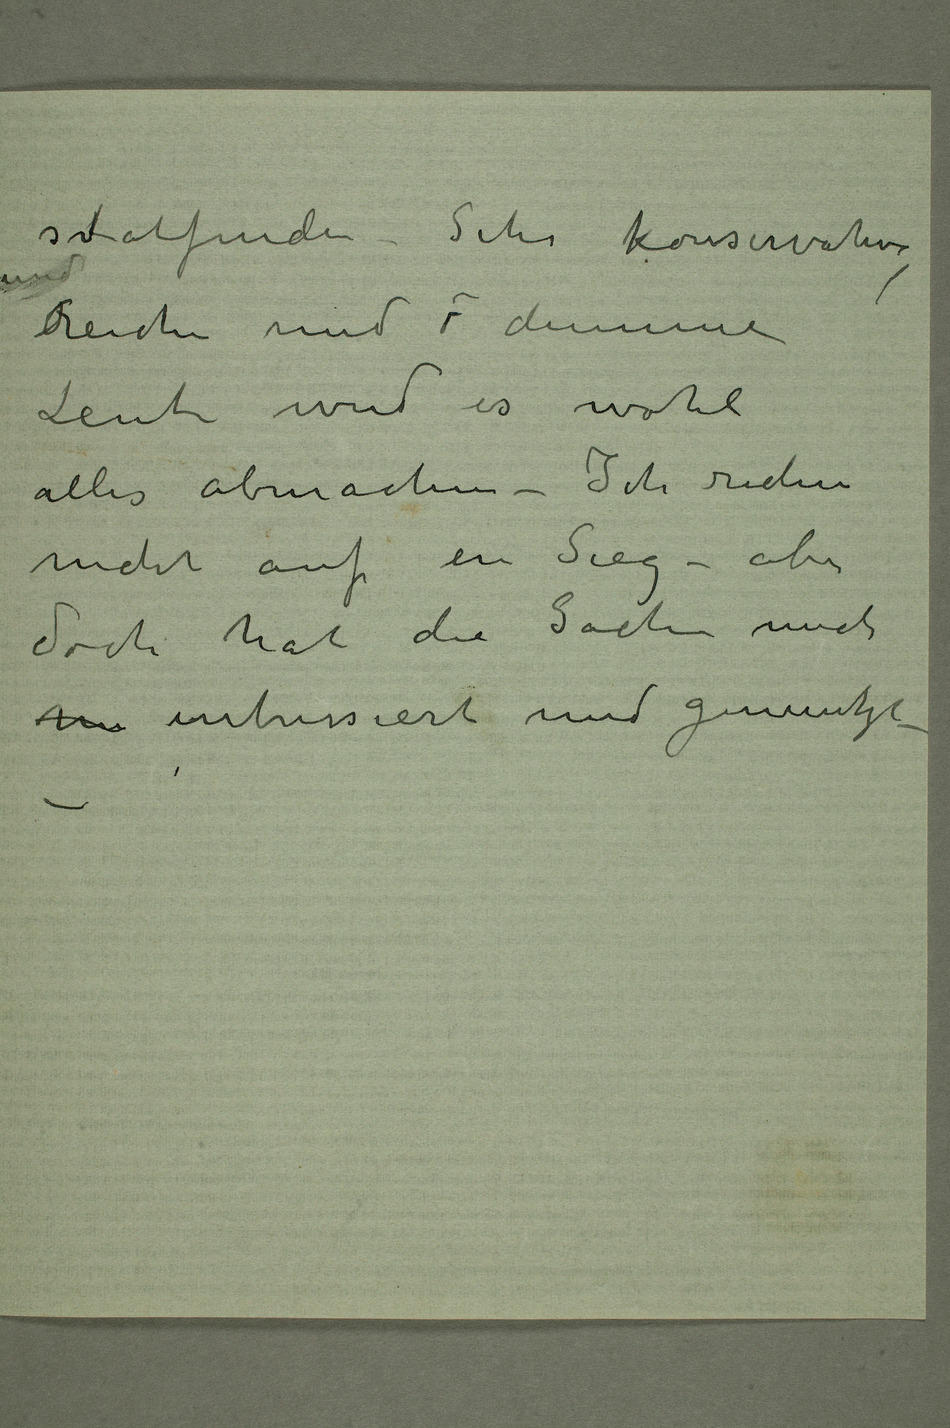 statfinden – Sehr konservative,
und
Reiche und dumme
Leute wird es wohl
alles abmachen – Ich rechne
nicht auf en Sieg – aber
doch hat die Sache mich
intressiert und genutzt –
–